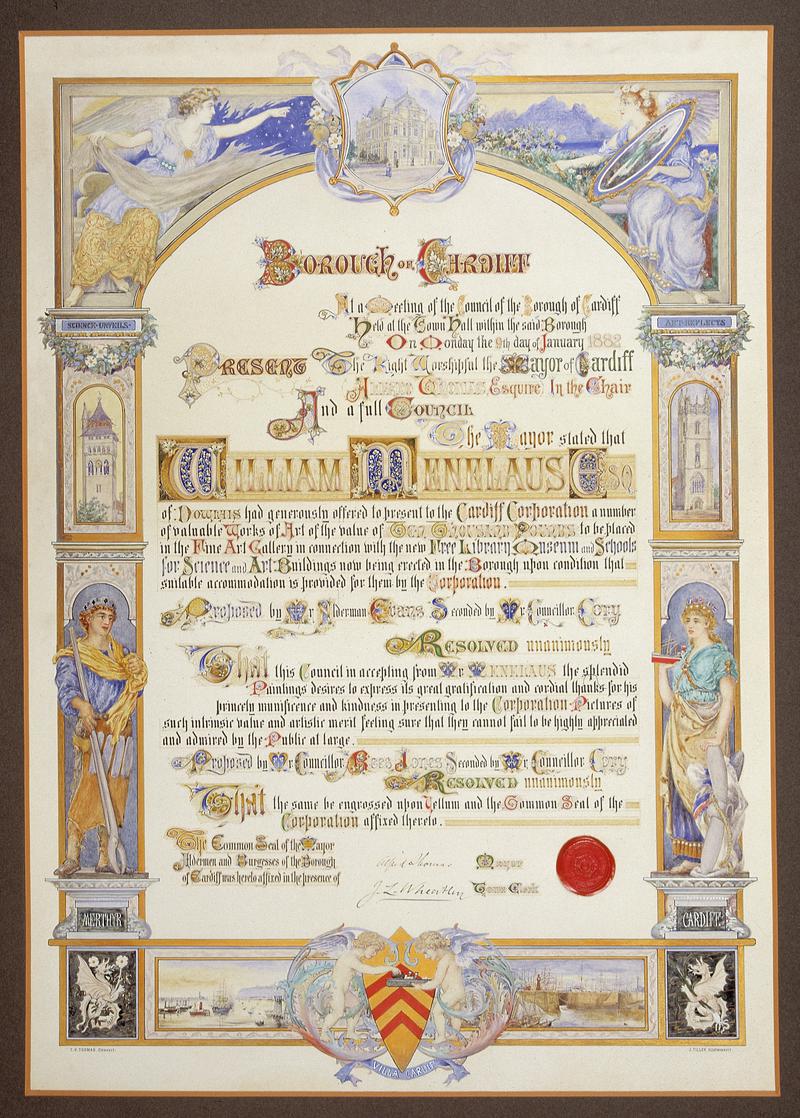 SCIENCE·UNVEILS·
ART·REFLECTS
Borough of Cardiff
At a Meeting of the Council of the Borough of Cardiff
Held at the Town Hall within the said Borough
On Monday the 9th day of January 1882
Present The Right Worshipful the Mayor of Cardiff
Alfred Thomas, Esquire, In the Chair
And a full Council
The Mayor stated that
WILLIAM MENELAUS ESQ
of Dowlais had generously offered to present to the Cardiff Corporation a number
of valuable Works of Art of the value of Ten Thousand Pounds to be placed
in the Fine Art Gallery in connection with the new Free Library Museum and Schools
for Science and Art Buildings now being erected in the Borough upon condition that
suitable accommodation is provided for them by the Corporation.
Proposed by Mr Alderman Evans Seconded by Mr Councillor Cory
Resolved unanimously
That this Council in accepting from Mr MENELAUS the splendid
Paintings desires to express its great gratification and cordial thanks for his
princely munificence and kindness in presenting to the Corporation Pictures of
such intrinsic value and artistic merit feeling sure that they cannot fail to be highly appreciated
and admired by the Public at large.
Proposed by Mr Councillor Rees Jones Seconded by Mr Councillor Cory
Resolved unanimously
That the same be engrossed upon Vellum and the Common Seal of the
Corporation affixed thereto.
The Common Seal of the Mayor
Aldermen and Burgesses of the Borough
of Cardiff was hereto affixed in the presence of
Alfred Thomas Mayor
J. L. Wheatley Town Clerk
MERTHYR
CARDIFF
VILLA CARDIF
T. H. THOMAS,
J. TILLEY,